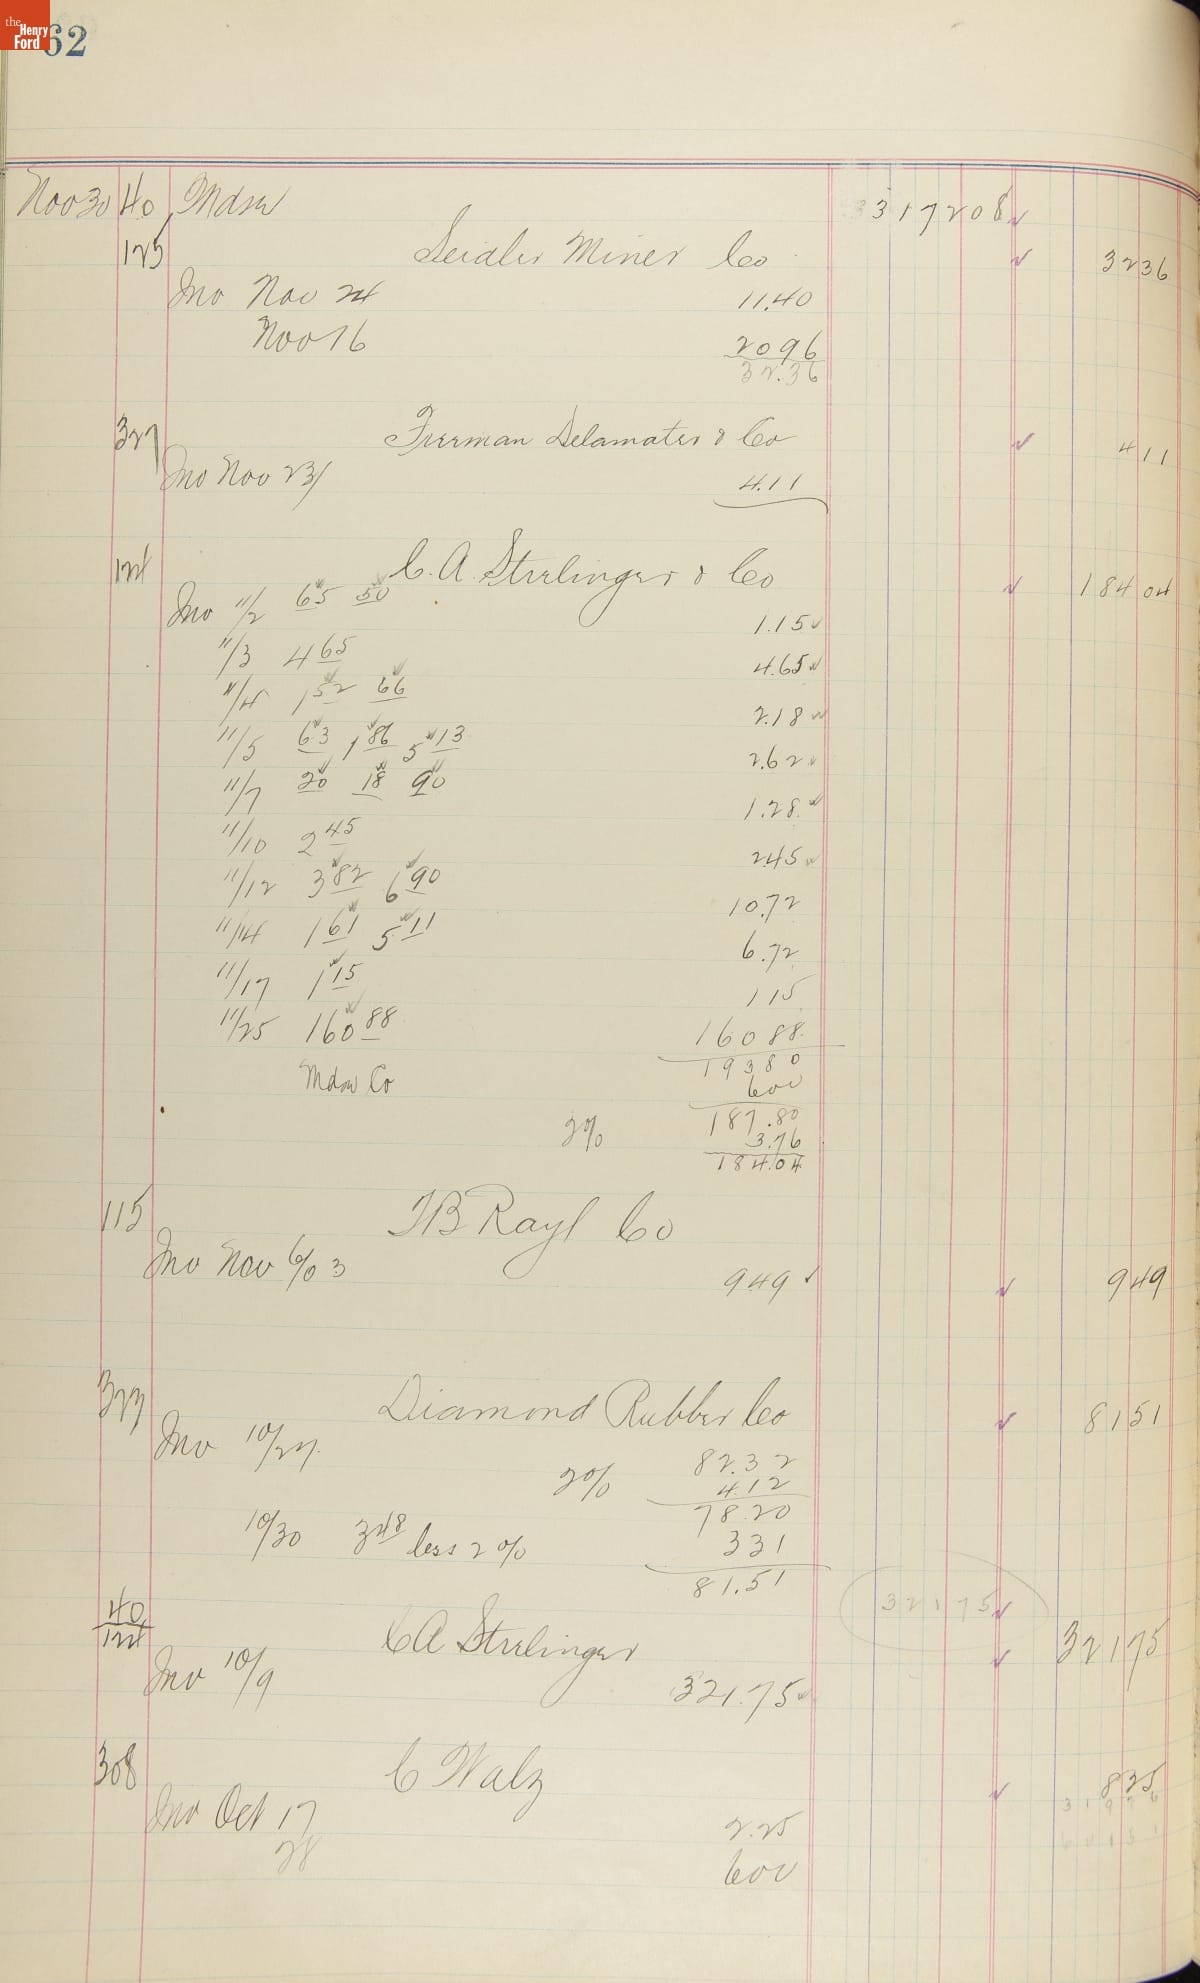 the Henry Ford
62
Nov 30 40 Mdse 3 3 17208
125 Seidler Miner Co 3236
Inv Nov 24 11.40
Nov 16 2096
32.36
327 Freeman Delamater & Co 411
Inv Nov 23 4.11
124 C. A. Strelinger & Co 184 04
Inv 11/2 65 50 1.15
11/3 4 65 4.65
11/4 1 52 66 2.18
11/5 63 1 86 5 13 2.62
11/7 20 18 90 1.28
11/10 2 45 2.45
11/12 3 82 6 90 10.72
11/14 1 61 5 11 6.72
11/17 1 15 1 15
11/25 160 88 160 88
193 80
Mdse Co 600
187.80
2% 3.76
184.04
115 T B Rayl Co
Inv Nov 6/03 949 949
323 Diamond Rubber Co 8151
Inv 10/27 82.32
20% 4.12
78.20
10/30 3 48 less 2% 331
81.51
32175
40/124 C A Strelinger 32175
Inv 10/9 321.75
308 C Walz 825
31976
64151
Inv Oct 17 2.25
28 600